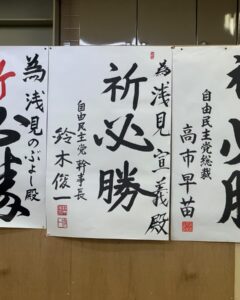 自由民主党総裁
高市早苗
為浅見宣義殿
祈必勝
自由民主党幹事長
鈴木俊一
為浅見のぶよし殿
祈
必勝